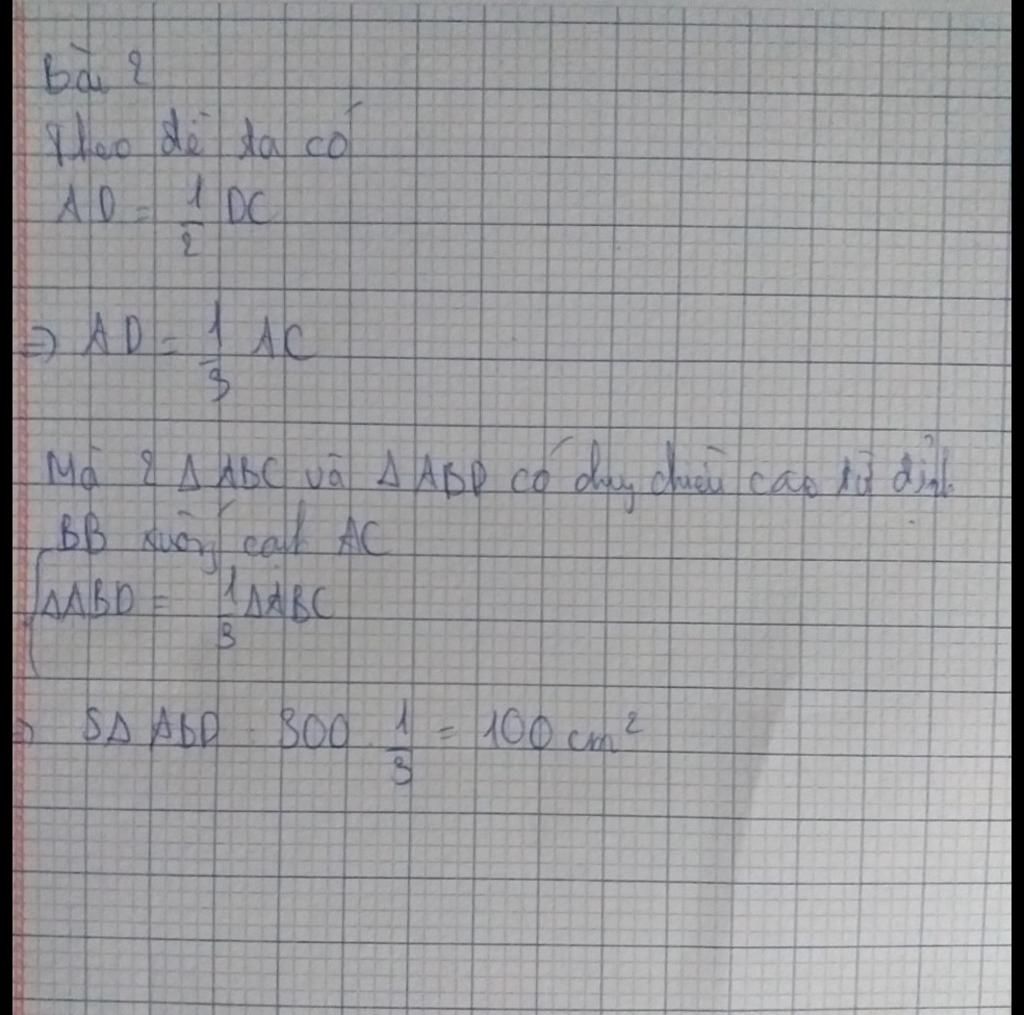 Bài 2
Theo đề ta có
AD = 1/2 DC
⇒ AD = 1/3 AC
Mà 2 Δ ABC và Δ ABD có chung chiều cao từ đỉnh
BB xuống cạnh AC
ΔABD = 1/3 ΔABC
SΔ ABD = 300 . 1/3 = 100 cm²